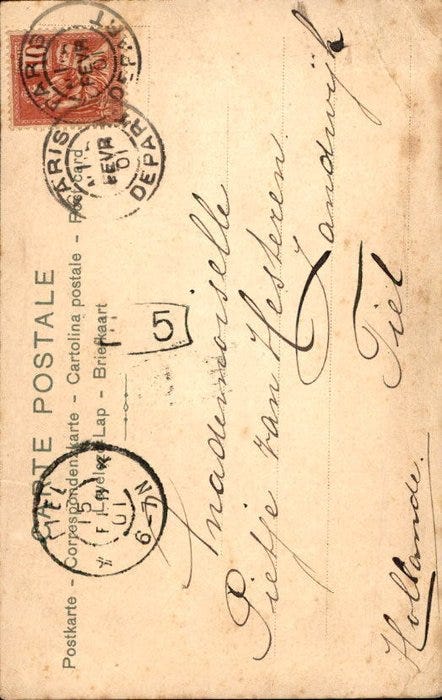 CARTE POSTALE
Postkarte - Correspondenzkarte - Cartolina postale - Post card
Levelező-Lap - Briefkaart
PARIS DEPART
FEVR
01
PARIS DEPART
FEVR
01
5
TIEL
15
01
6-7N
Mademoiselle
Pietje van Hesteren.
Zandwijk
Tiel
Hollande.